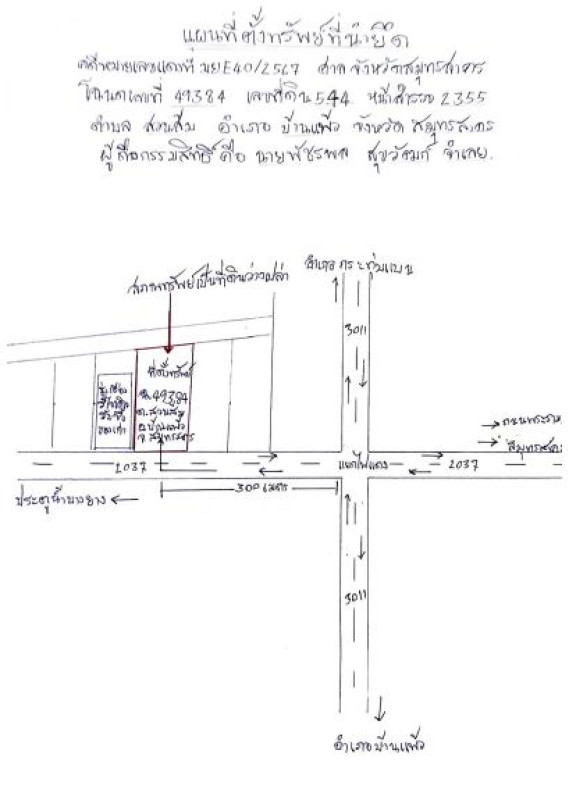 แผนที่ตั้งทรัพย์ที่นำยึด
คดีหมายเลขแดงที่ ผบE40/2567 ศาล จังหวัดสมุทรสาคร
โฉนดเลขที่ 49384 เลขที่ดิน 544 หน้าสำรวจ 2355
ตำบล สวนส้ม อำเภอ บ้านแพ้ว จังหวัด สมุทรสาคร
ผู้ถือกรรมสิทธิ์ คือ นายพัชรพล จำเลย.
อำเภอกระทุ่มแบน
สภาพทรัพย์เป็นที่ดินว่างเปล่า
3011
ที่ตั้งทรัพย์
ฉ.49384
ต.สวนส้ม
อ.บ้านแพ้ว
จ.สมุทรสาคร
รับซื้อ
ของเก่า
ถนนพระราม
สมุทรสาคร
2037
แยกไฟแดง
2037
300 เมตร
ประตูน้ำบางยาง
3011
อำเภอบ้านแพ้ว